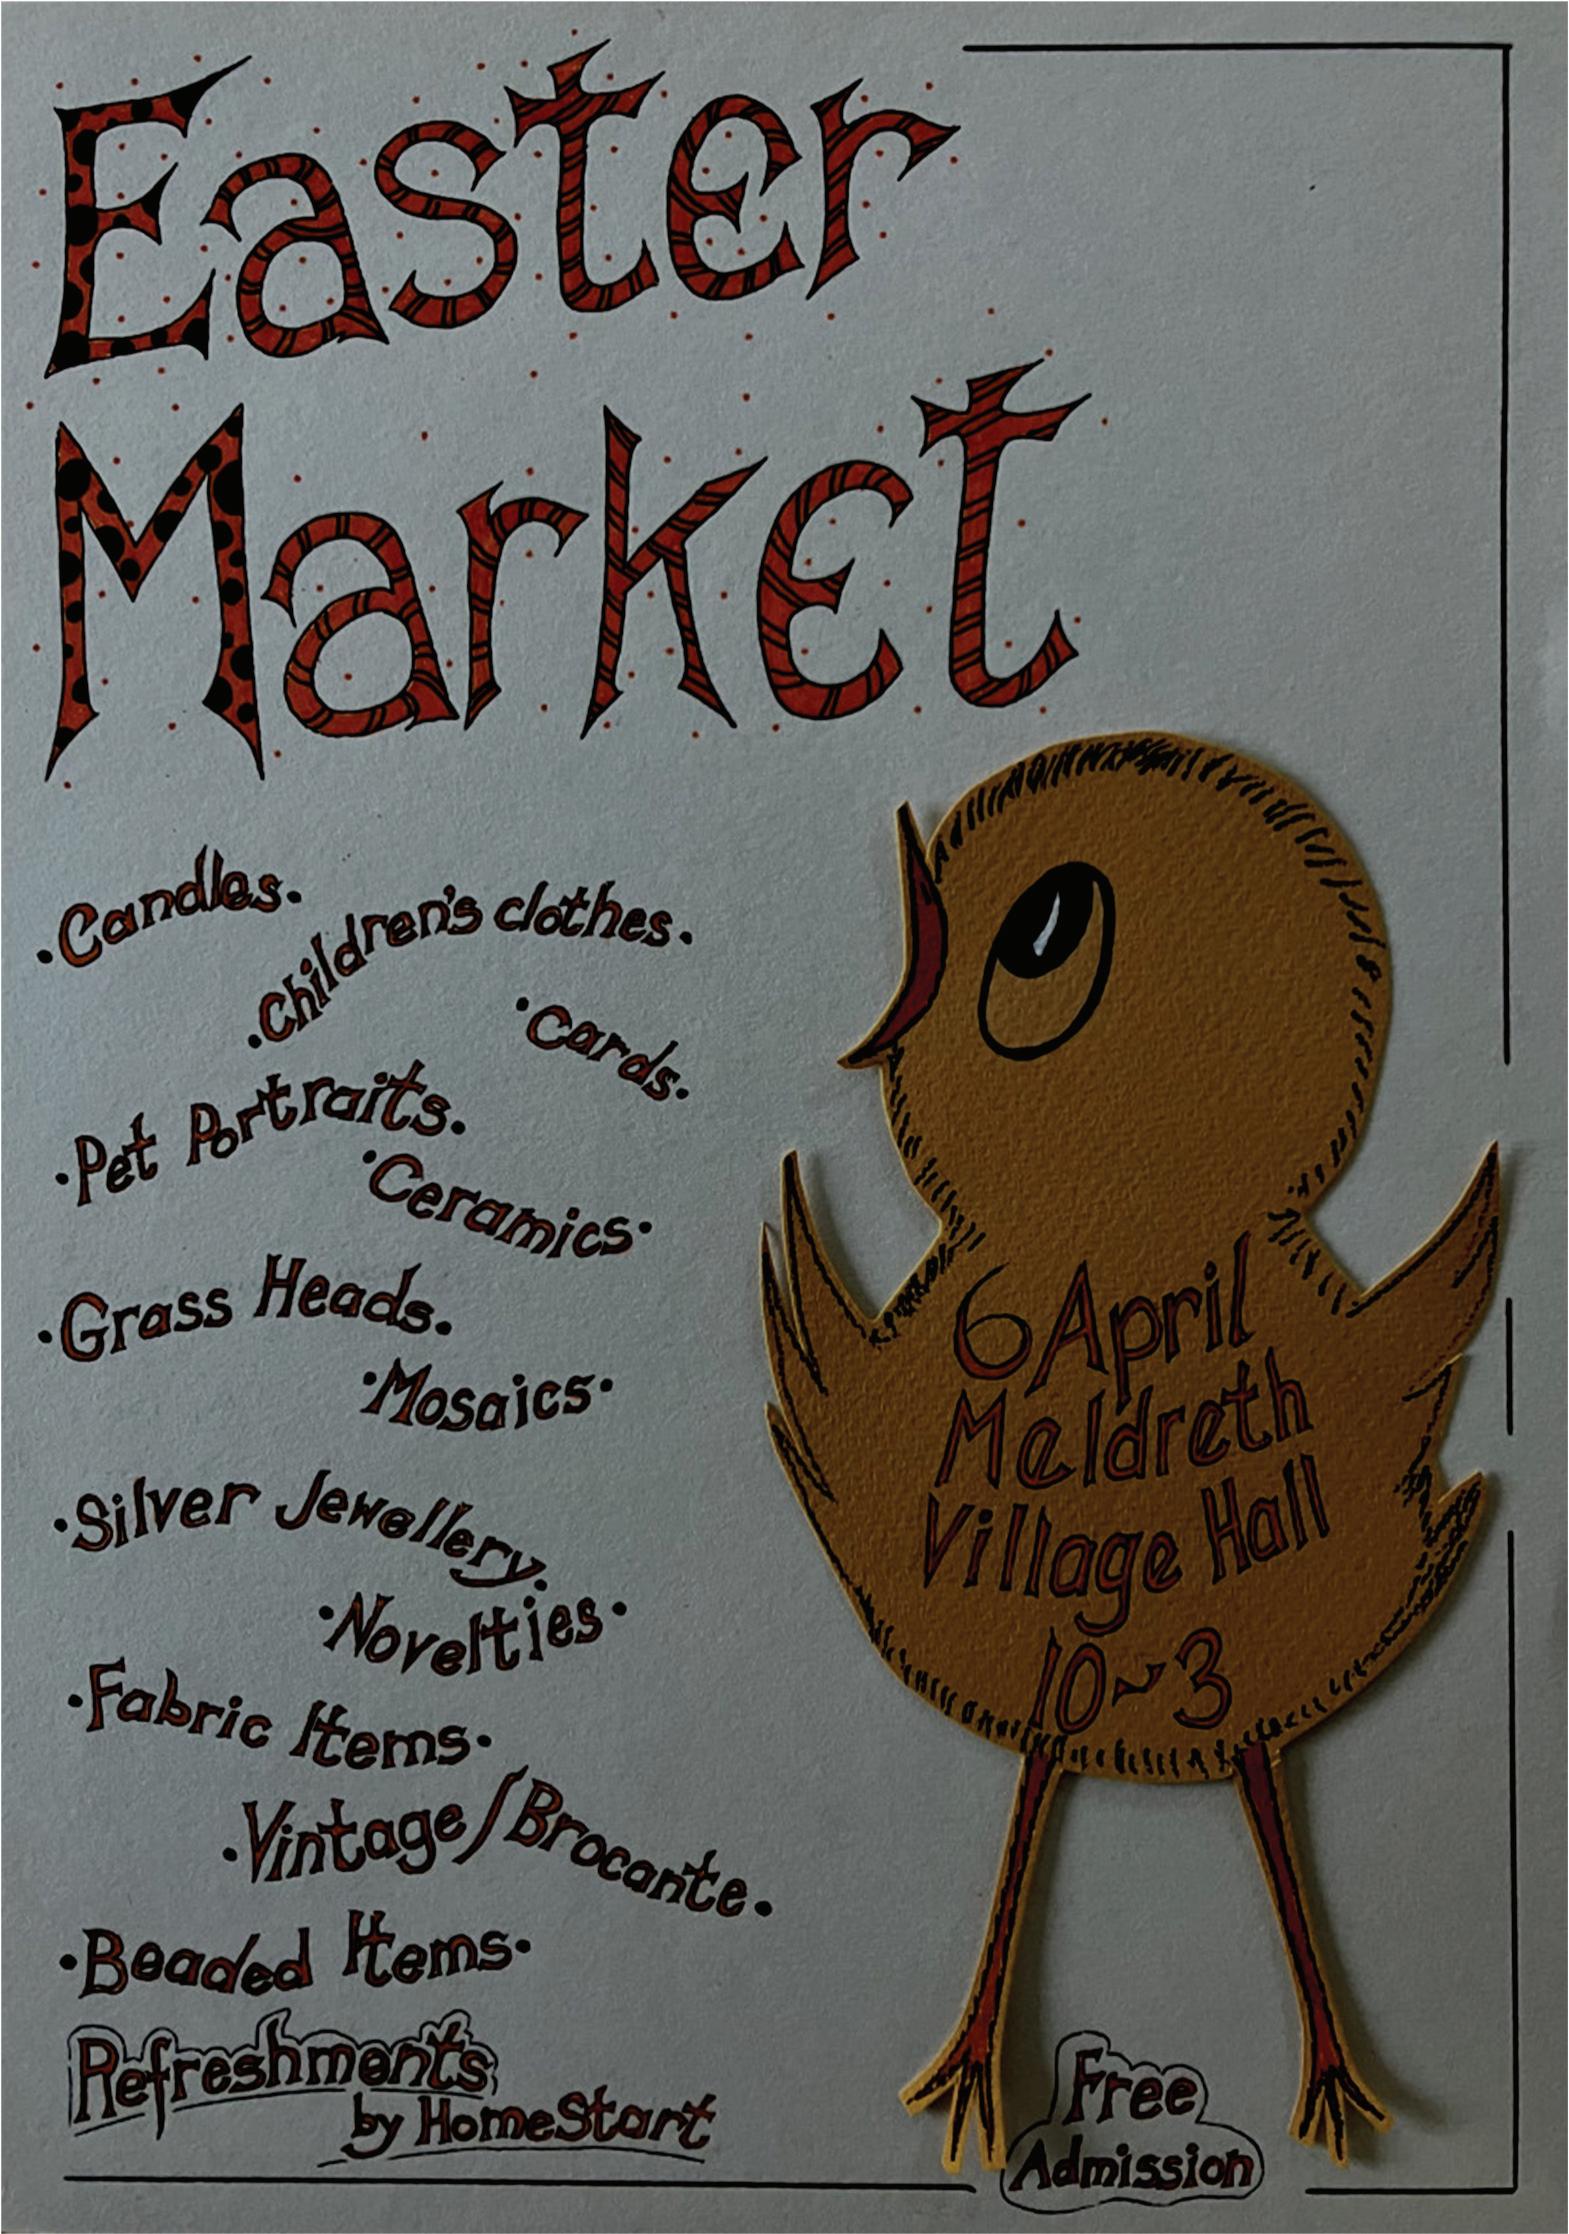 Easter
Market
·Candles.
·Children's clothes.
·Cards.
·Pet Portraits.
·Ceramics·
·Grass Heads.
·Mosaics·
·Silver Jewellery.
·Novelties·
·Fabric Items·
·Vintage/Brocante.
·Beaded Items·
Refreshments
by HomeStart
6 April
Meldreth
Village Hall
10~3
Free
Admission